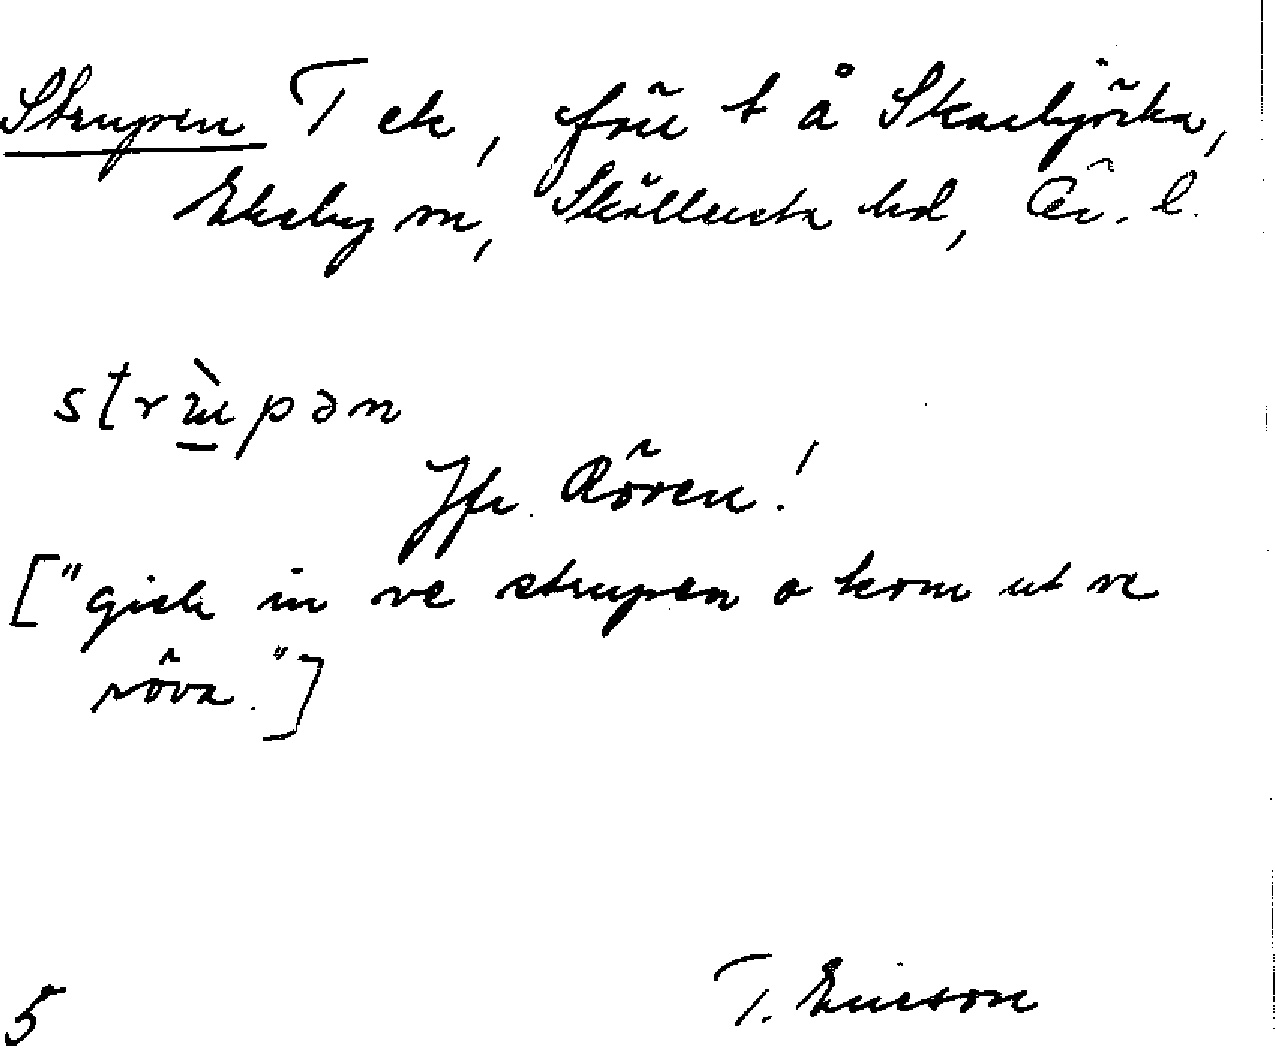 Strupen T ek, förr t å Skarbjörka,
Ekeby sn, Sköllersta hd, Ör. l.
strupən
Jfr. Rören!
["gick in ve strupen o kom ut ve
röva."]
T. Ericson
5